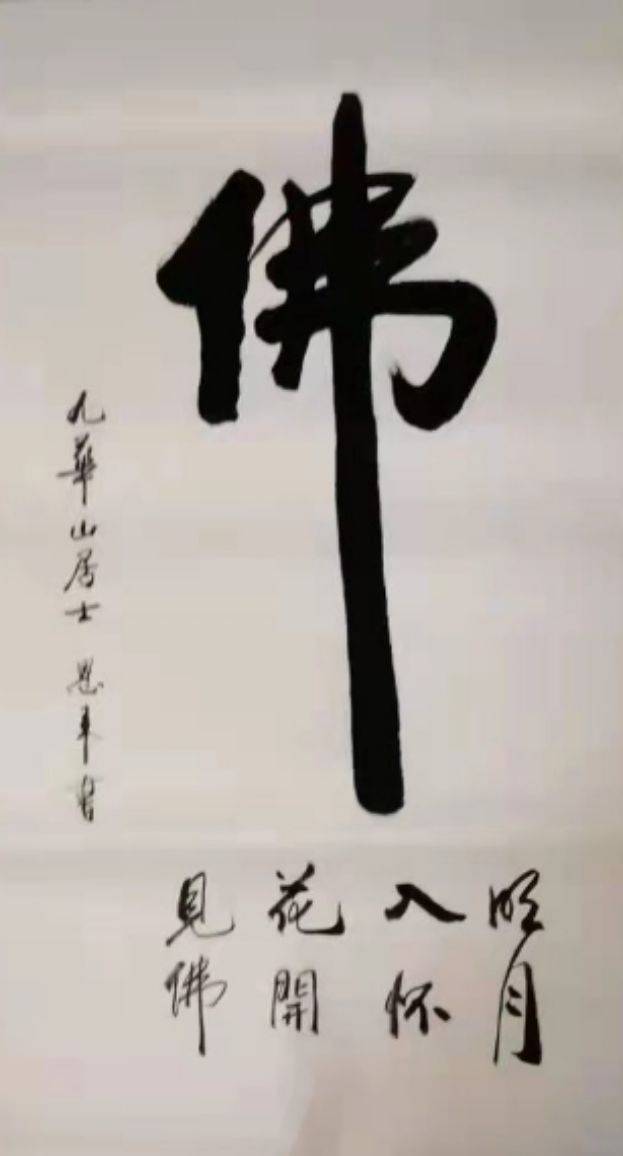 佛
明月
入怀
花開
見佛
九華山居士
書